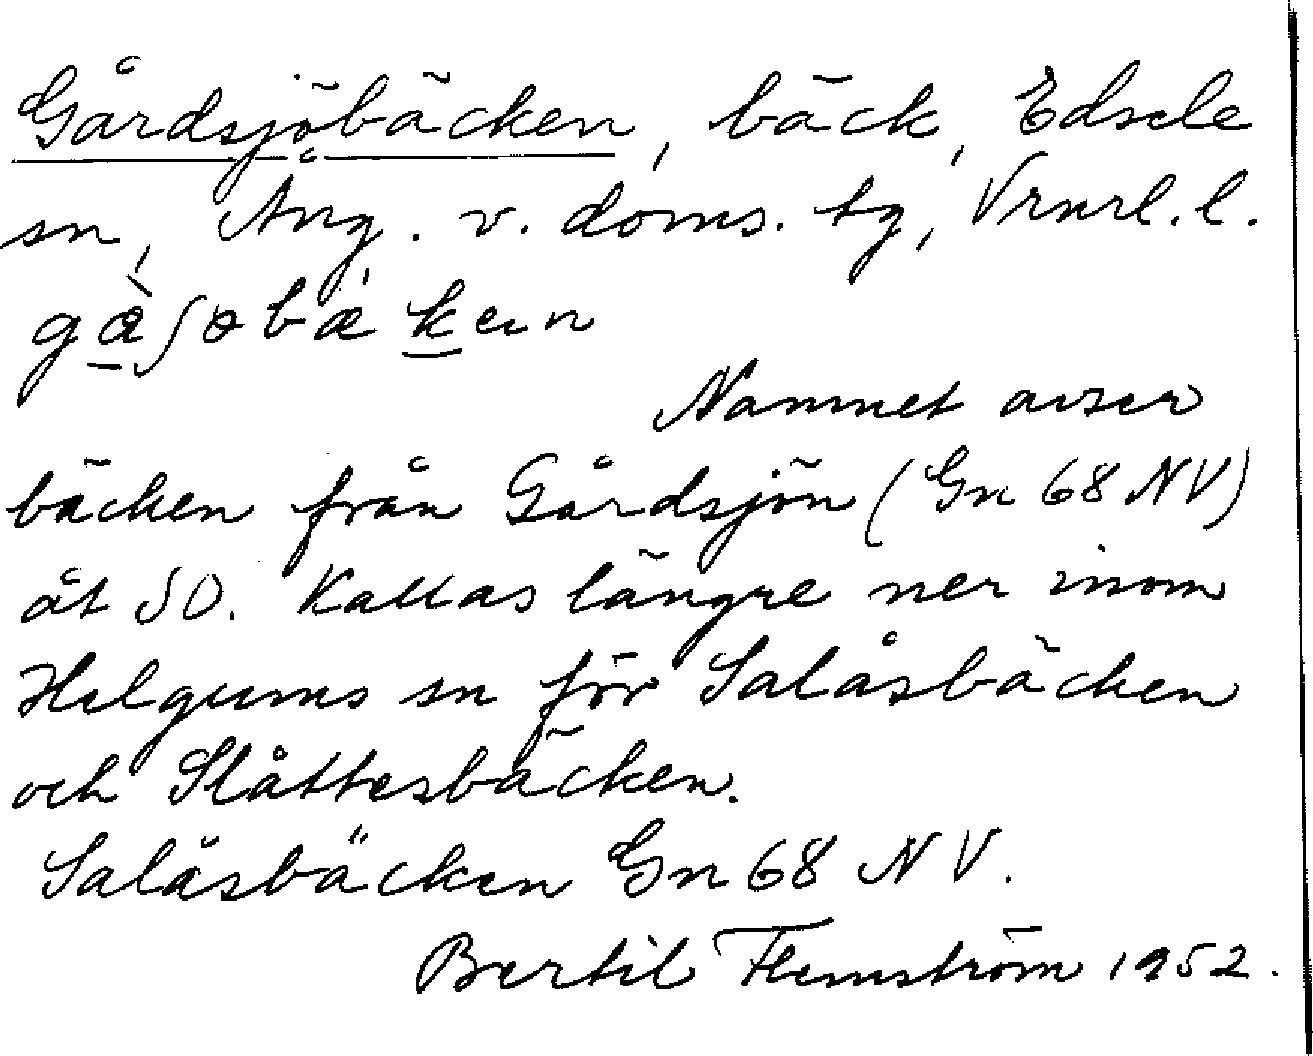 Gårdsjöbäcken, bäck, Edsele
sn, Ång. v. doms. tg, Vrnrl. l.
bäcken från Gårdsjön (Gn 68 NV)
åt SO. Kallas längre ner inom
Helgums sn för Salåsbäcken
och Slåttesbäcken.
Salåsbäcken Gn 68 NV.
Namnet avser
Bertil Flemström 1952.